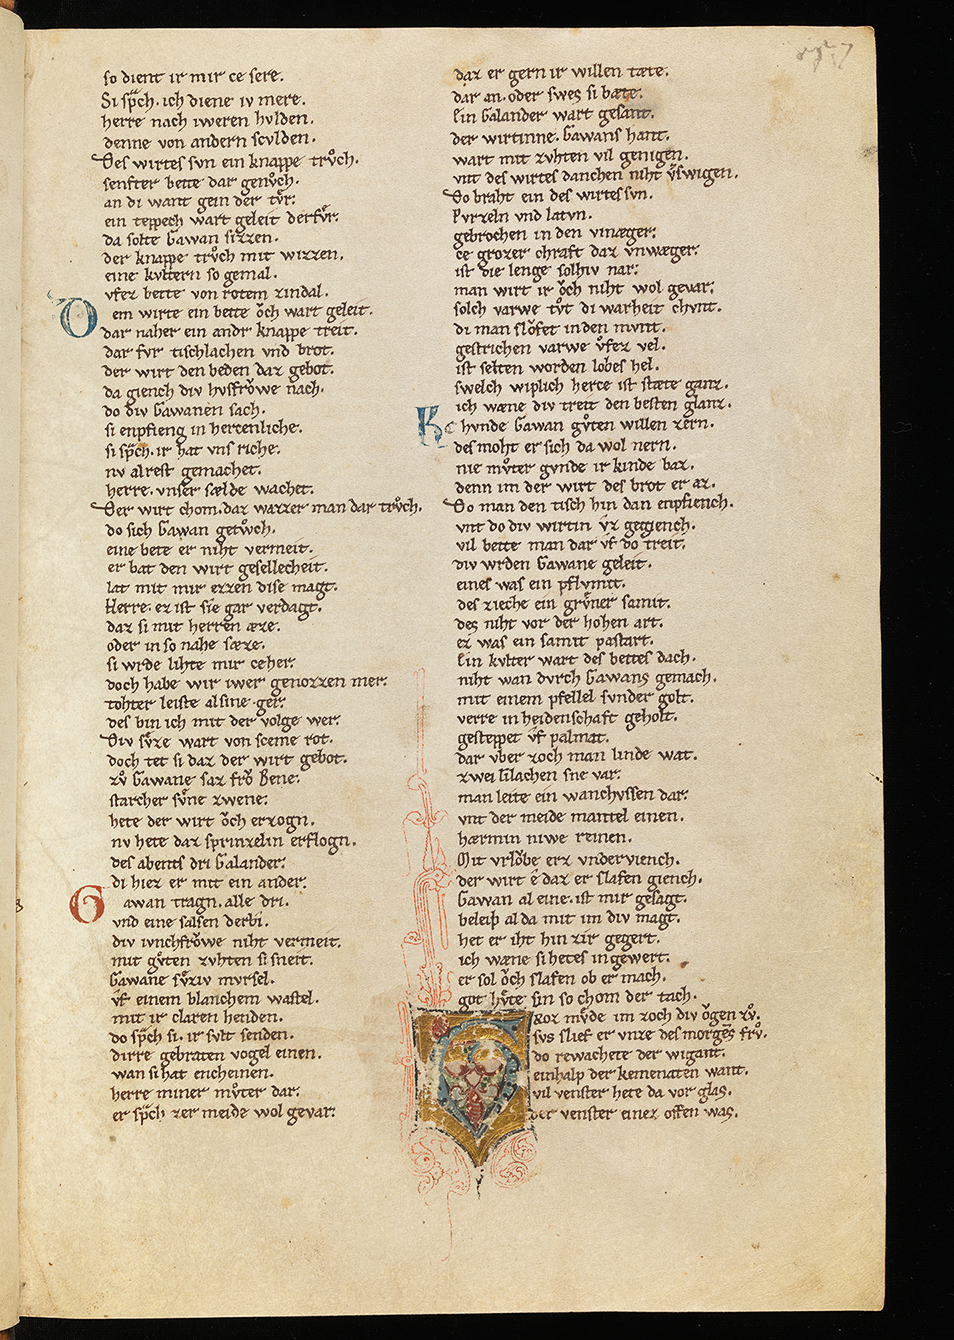 so dient ir mir ce sere.
Si sp̄ch. ich diene iv mere.
herre nach iweren hvlden.
denne von andern scvlden.
Des wirtes svn ein knappe trvͦch.
senfter bette dar genvͦch.
an di want gein der tvͤr.
ein teppech wart geleit derfvͤr.
da solte Gawan sizzen.
der knappe trvͦch mit wizzen.
eine kvltern so gemal.
vfez bette von rotem zindal.
Dem wirte ein bette oͮch wart geleit.
dar naher ein andr knappe treit.
dar fvr tischlachen vnd brot.
der wirt den beden daz gebot.
da giench div hvsfroͮwe nach.
do div Gawanen sach.
si enpfieng in hercenliche.
si sp̄ch. ir hat vns riche.
nv alrest gemachet.
herre. vnser sælde wachet.
Der wirt chom. daz wazzer man dar trvͦch.
do sich Gawan getwͦch.
eine bete er niht vermeit.
er bat den wirt gesellecheit.
lat mit mir ezzen dise magt.
Herre. ez ist sie gar verdagt.
daz si mit herren æze.
oder in so nahe sæze.
si wrde lihte mir ceher.
doch habe wir iwer genozzen mer.
tohter leiste al sine ger.
des bin ich mit der volge wer.
Div svͤze wart von sceme rot.
doch tet si daz der wirt gebot.
zvͦ Gawane saz froͮ Bene.
starcher svͤne zwene.
hete der wirt oͮch erzogn.
nv hete daz sprinzelin erflogn.
des abents dri Galander.
di hiez er mit ein ander.
Gawan tragn. alle dri.
vnd eine salsen derbi.
div ivnchfroͮwe niht vermeit.
mit gvͦten zvhten si sneit.
Gawane svͤziv mvrsel.
vf einem blanchem wastel.
mit ir claren henden.
do sp̄ch si. ir svlt senden.
dirre gebraten vogel einen.
wan si hat encheinen.
herre miner mvͦter dar.
er sp̄ch zer meide wol gevar.
daz er gern ir willen tæte.
dar an. oder swes si bæte.
Ein Galander wart gesant.
der wirtinne. Gawans hant.
wart mit zvhten vil genigen.
vnt des wirtes danchen niht v̄swigen.
Do braht ein des wirtes svn.
Pvrzeln vnd latvn.
gebrochen in den vinæger.
ce grozer chraft daz vnwæger.
ist die lenge solhiv nar.
man wirt ir oͮch niht wol gevar.
solch varwe tvͦt di warheit chvnt.
di man sloͮfet in den mvnt.
gestrichen varwe vͦfez vel.
ist selten worden lobes hel.
swelch wiplich herce ist stæte ganz.
ich wæne div treit den besten glanz.
Kchvnde Gawan gvͦten willen zern.
des moht er sich da wol nern.
nie mvͦter gvnde ir kinde baz.
denn im der wirt des brot er az.
Do man den tisch hin dan enpfiench.
vnt do div wirtin v̄z gegiench.
vil bette man dar vf do treit.
div wrden Gawane geleit.
eines was ein pflvmit.
des zieche ein grvͤner samit.
des niht vor der hohen art.
ez was ein samit pastart.
Ein kvlter wart des bettes dach.
niht wan dvrch Gawans gemach.
mit einem pfellel svnder golt.
verre in heidenschaft geholt.
gesteppet vf palmat.
dar vber zoch man linde wat.
zwei lilachen sne var.
man leite ein wanchvssen dar.
vnt der meide mantel einen.
hærmin niwe reinen.
Mit vrloͮbe erz vnderviench.
der wirt ê daz er slafen giench.
Gawan al eine. ist mir gesagt.
beleip al da mit im div magt.
het er iht hin zir gegert.
ich wæne si hetes in gewert.
er sol oͮch slafen ob er mach.
got hvͤte sin so chom der tach.
Groz mvͤde im zoch div oͮgen zvͦ.
svs slief er vnze des morgēs frvͦ.
do rewachete der wigant.
einhalp der kemenaten want.
vil venster hete da vor glas.
der venster einez offen was.